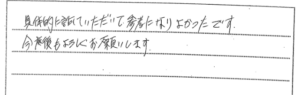 具体的に話していただいて参考になりよかったです。
今後もよろしくお願いします